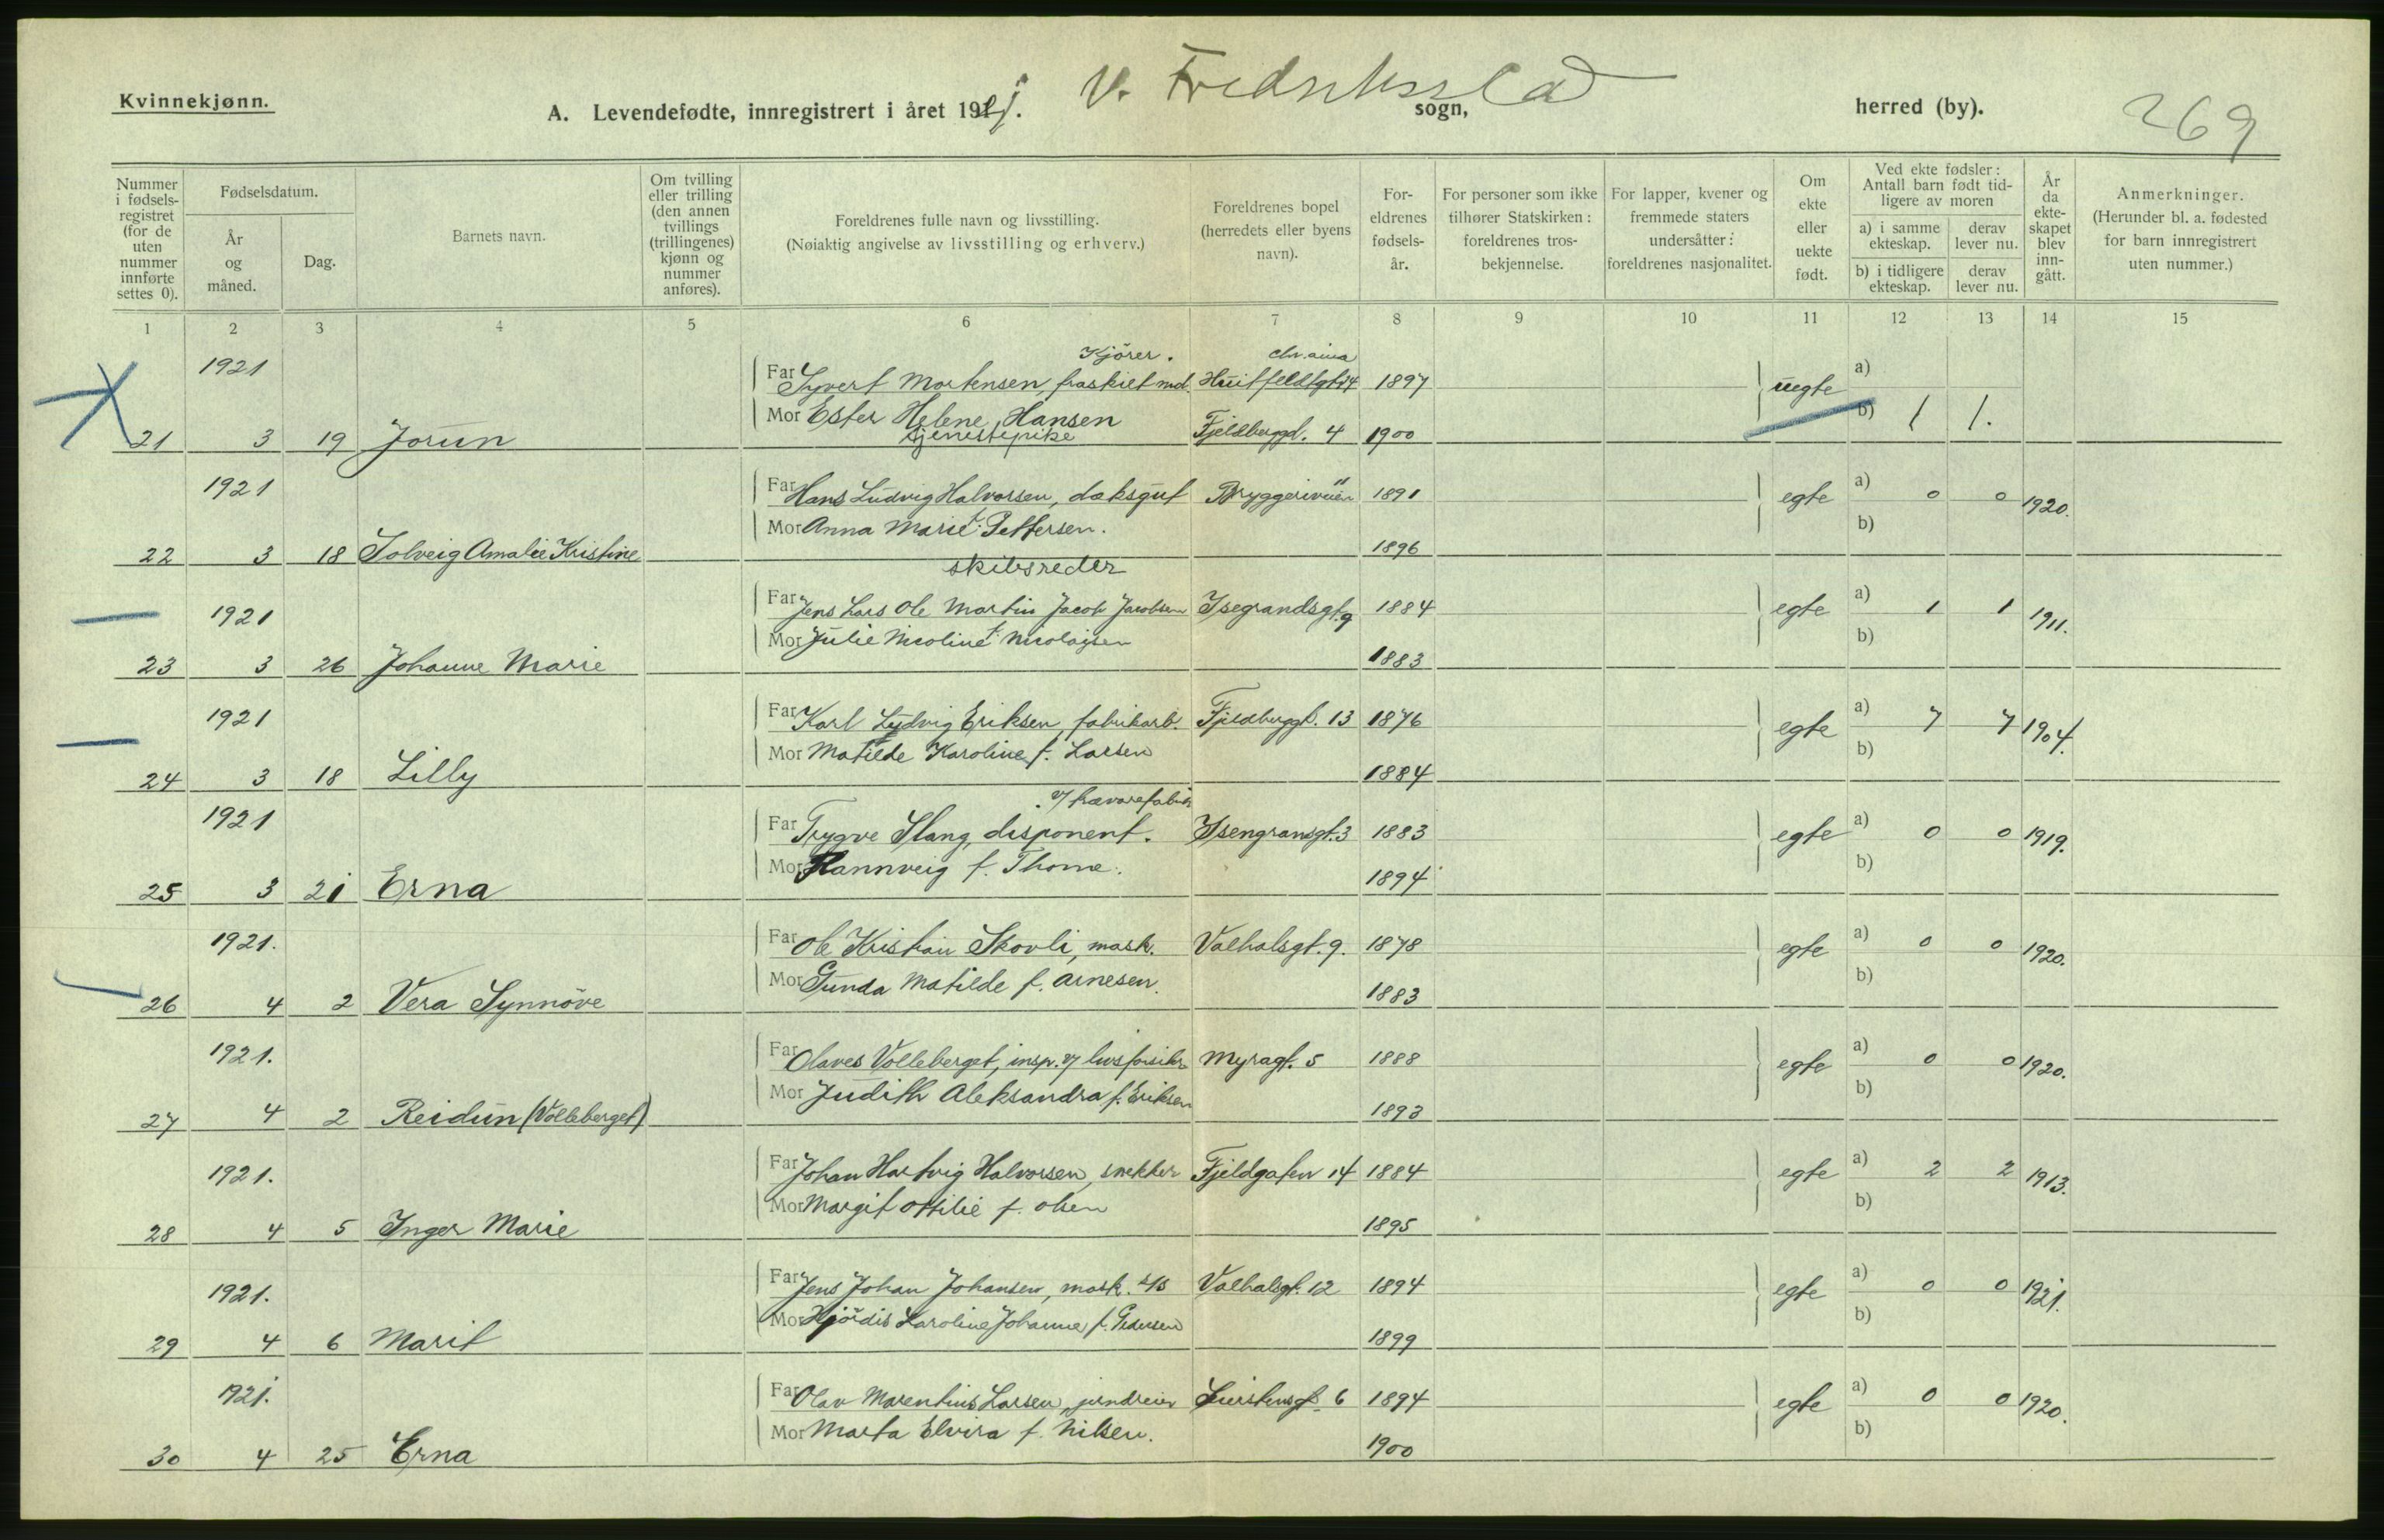 Kvinnekjønn.
A. Levendefødte, innregistrert i året 1921. V. Fredriksstad sogn, herred (by). 269
Nummer i fødselsregistret (for de uten nummer innførte settes 0).
Fødselsdatum.
År og måned.
Dag.
Barnets navn.
Om tvilling eller trilling (den annen tvillings (trillingenes) kjønn og nummer anføres).
Foreldrenes fulle navn og livsstilling.
(Nøiaktig angivelse av livsstilling og erhverv.)
Foreldrenes bopel (herredets eller byens navn).
Foreldrenes fødselsår.
For personer som ikke tilhører Statskirken: foreldrenes trosbekjennelse.
For lapper, kvener og fremmede staters undersåtter: foreldrenes nasjonalitet.
Om ekte eller uekte født.
Ved ekte fødsler: Antall barn født tidligere av moren
a) i samme ekteskap. derav lever nu.
b) i tidligere ekteskap. derav lever nu.
År da ekteskapet blev inngått.
Anmerkninger.
(Herunder bl. a. fødested for barn innregistrert uten nummer.)
1 2 3 4 5 6 7 8 9 10 11 12 13 14 15
1921 Kjörer. Chr.ania
Far Syvert Mortensen fraskilt md. Huitfeldtgt 14 1897 uegte a)
Mor Ester Helene Hansen b) 1 1.
21 3 19 Jorun tjenestepike Fjeldberggd. 4 1900
1921 Far Hans Ludvig Halvorsen, daksgut Bryggeriveien 1891 egte a) 0 0 1920.
Mor Anna Marie f. Pettersen. b)
22 3 18 Solveig Amalie Kristine 1896
skibsreder
1921 Far Jens Lars Ole Martin Jacob Jacobsen Isegrandsgt. 9 1884 egte a) 1 1 1911.
Mor Julie Nicoline f. Nicolaisen b)
23 3 26 Johanne Marie 1883
1921 Far Karl Ludvig Eriksen, fabrikarb. Fjeldberggt. 13 1876 egte a) 7 7 1904.
Mor Matilde Karoline f. Larsen b)
24 3 18 Lilly 1884
v/ trævarefabrik
1921 Far Trygve Stang, disponent. Isengransgt. 3 1883 egte a) 0 0 1919.
Mor Rannveig f. Thorne. b)
25 3 21 Erna 1894
1921. Far Ole Kristian Skovli, mask. Valhalsgt. 9. 1878 egte a) 0 0 1920.
Mor Gunda Matilde f. Arnesen. b)
26 4 2 Vera Synnöve 1883
1921. Far Olaves Volleberget, insp. v/ livsforsikr. Myragt. 5 1888 egte a) 0 0 1920.
Mor Judith Aleksandra f. Eriksen b)
27 4 2 Reidun (Volleberget) 1893
1921. Far Johan Hartvig Halvorsen, snekker Fjeldgaten 14 1884 egte a) 2 2 1913.
Mor Margit Ottilie f. Olsen b)
28 4 5 Inger Marie 1895
1921. Far Jens Johan Johansen, mask. Valhalsgt. 12 1894 egte a) 0 0 1921.
Mor Hjördis Karoline Johanne f. Pedersen b)
29 4 6 Marit 1899
1921. Far Olav Marentius Larsen, jerndreier 6 1894 egte a) 0 0 1920.
Mor Marta Elvira f. Nilsen. b)
30 4 25 Erna 1900